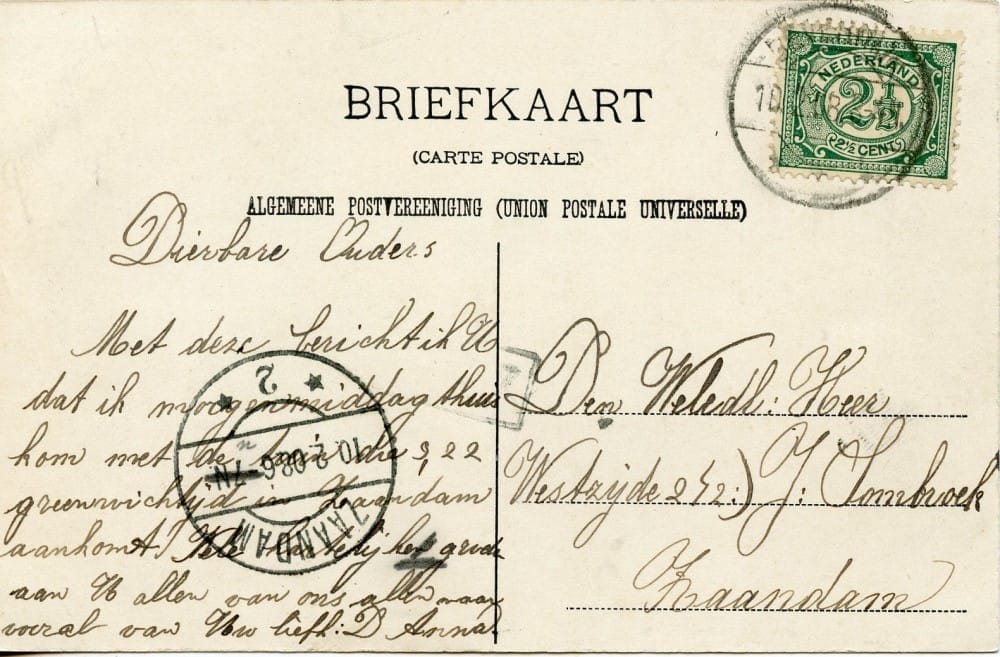 BRIEFKAART
(CARTE POSTALE)
ALGEMEENE POSTVEREENIGING (UNION POSTALE UNIVERSELLE)
NEDERLAND
2½
2½ CENT
Dierbare Ouders
Met deze bericht ik U
dat ik morgenmiddag thuis
kom met de trein die 3,22
greenwichtijd in Zaandam
aankomt! hartelijken groete
aan U allen van ons allen maar
vooral van Uw liefh: D Anna.
ZAANDAM
10.2.08.6-7N
2
Den Weledl: Heer
Westzijde 272:) J: Lombroek
Zaandam